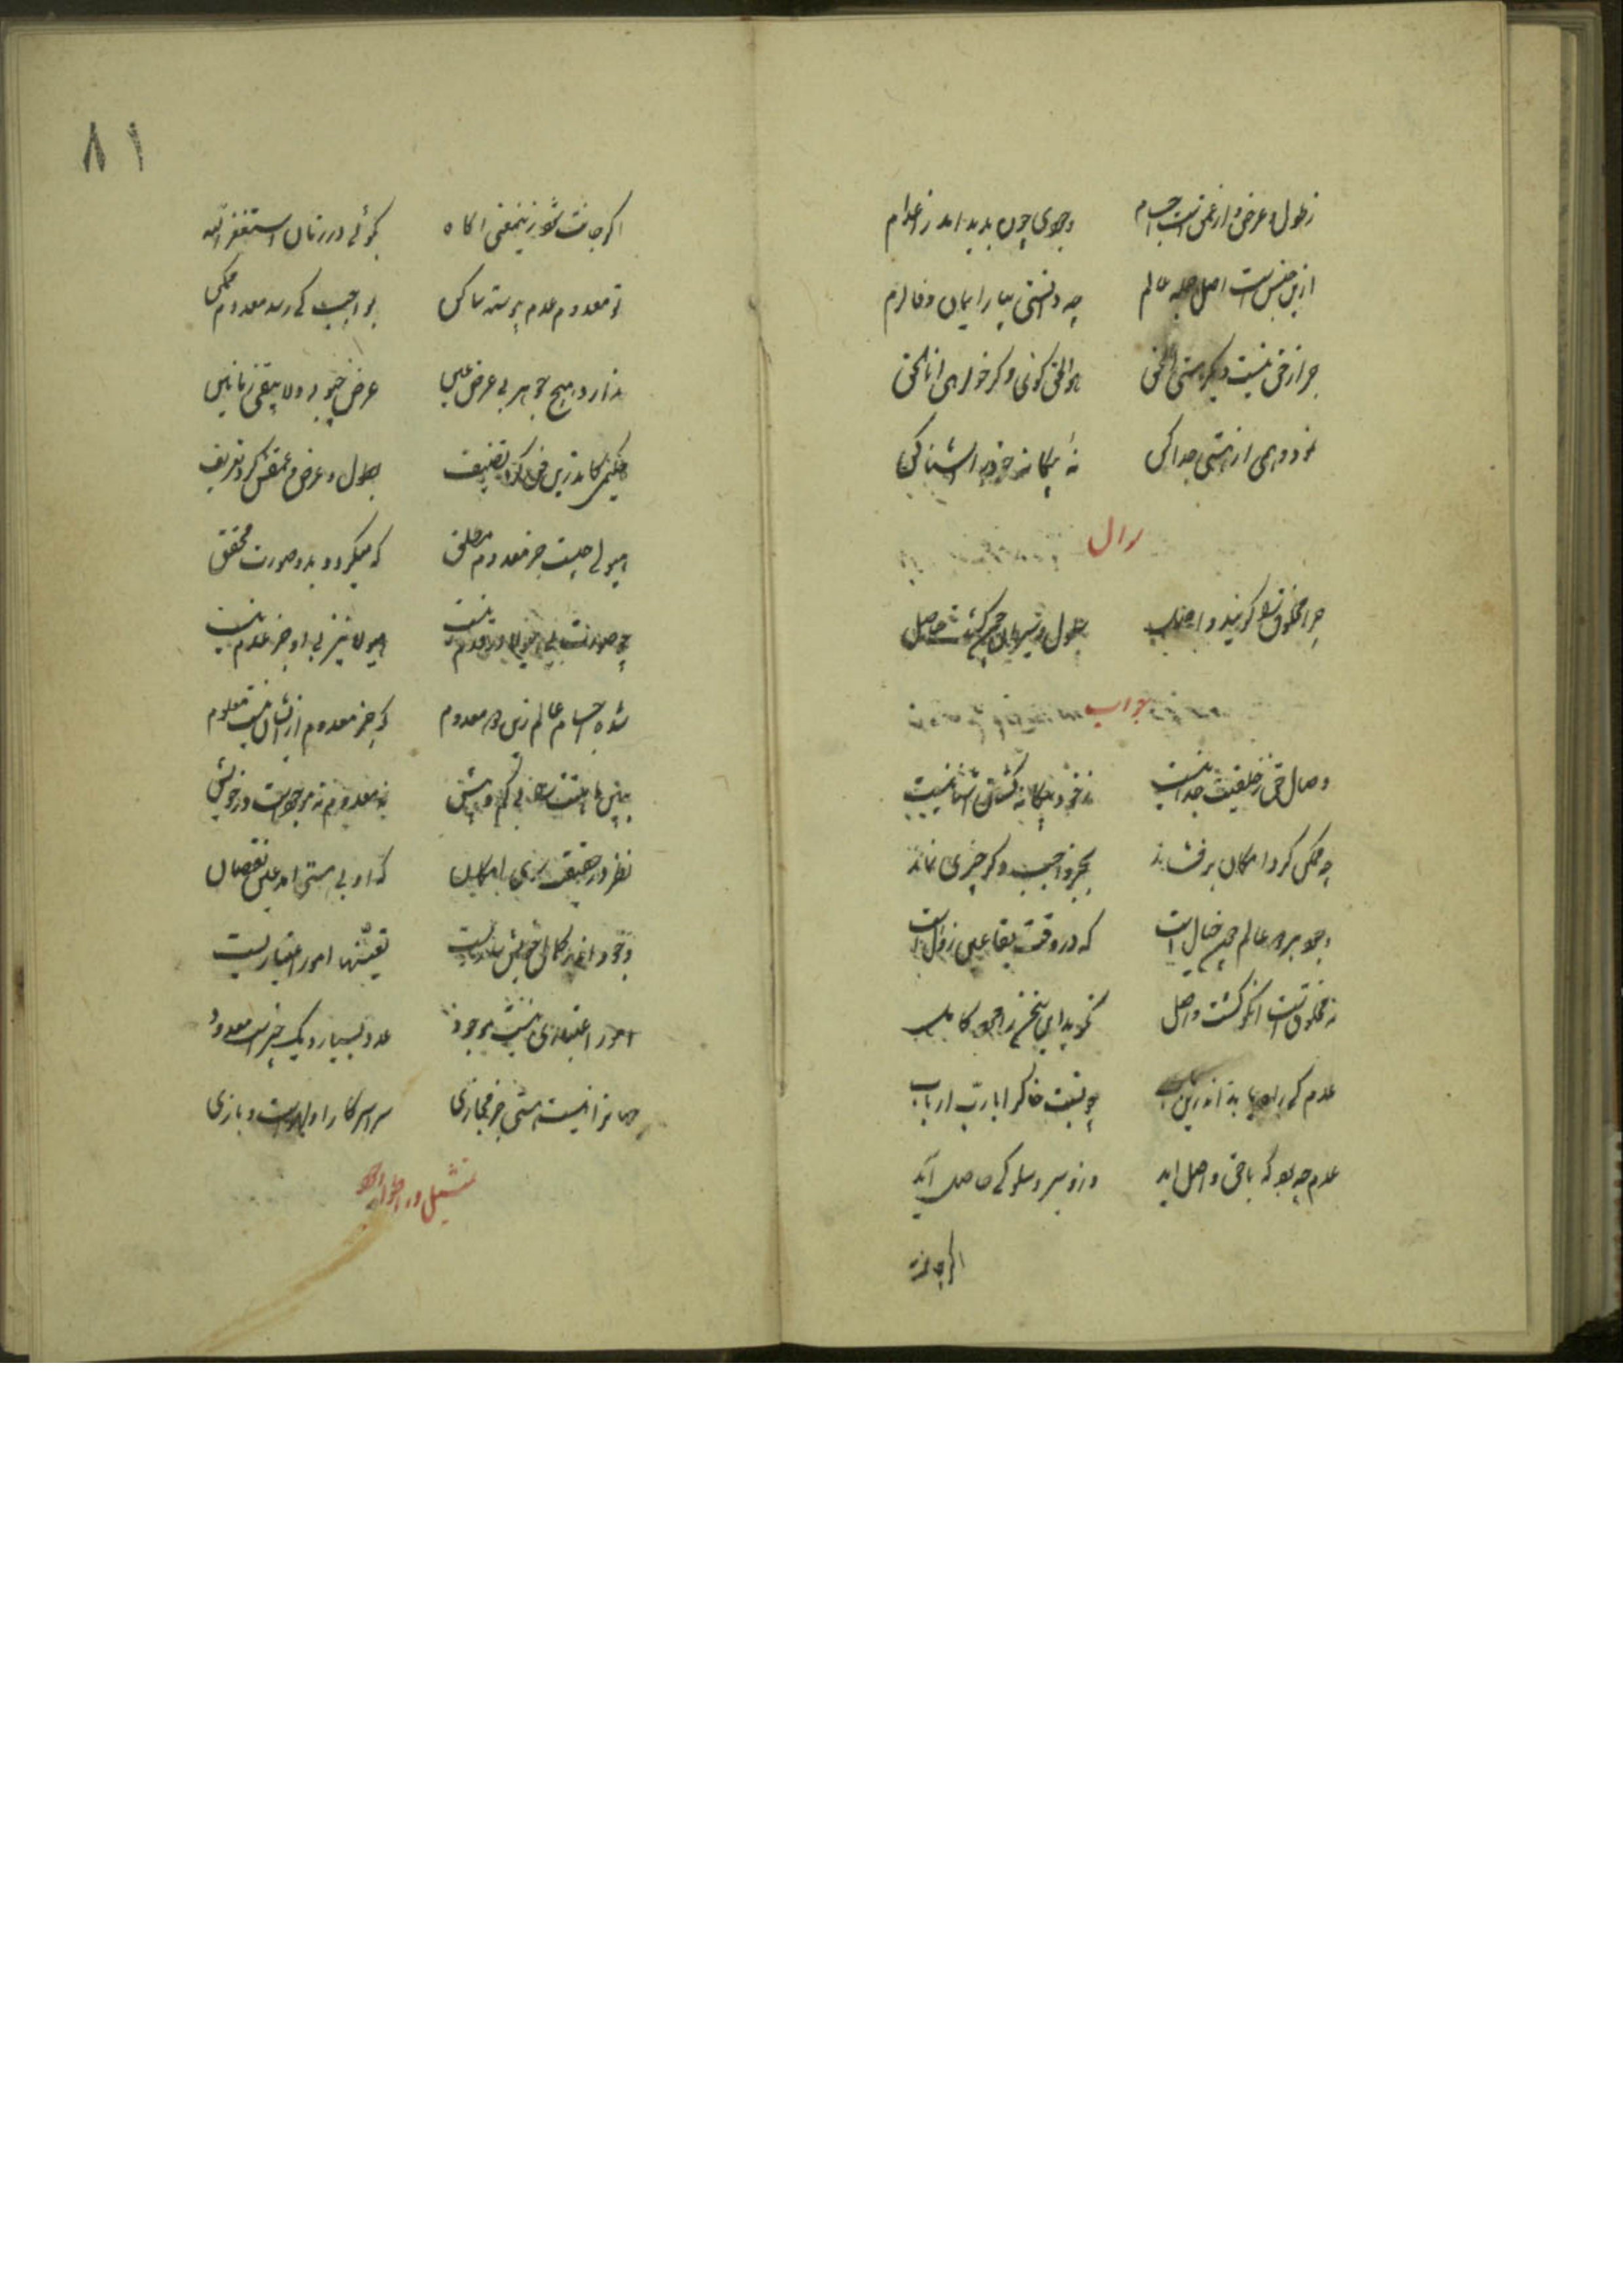 ز طول و عرض و از عمق است اجسام وجودی چون پدید آمد ز اعدام
ازین جنس است اصل جمله عالم چو دانستی بیار ایمان و فالزم
جز از حق نیست دیگر هستی الحق هو الحق گوی و گر خواهی انا الحق
نمود وهمی از هستی جدا کن نه بیگانه خود را آشنا کن
سوال
چرا مخلوق را گویند واصل سلوک و سیر او چون گشت حاصل
جواب
وصال حق ز خلقیت جدائیست ز خود بیگانه گشتن آشنائیست
چو ممکن گرد امکان برفشاند بجز واجب دگر چیزی نماند
وجود هر دو عالم چون خیال است که در وقت بقا عین زوال است
نه مخلوق است آنکو گشت واصل نگوید این سخن را مرد کامل
عدم کی راه یابد اندرین باب چه نسبت خاک را با رب ارباب
عدم چه بود که با حق واصل آید وزو سیر و سلوکی حاصل آید
اگر جانت
۸۱
اگر جانت شود زین معنی آگاه بگوئی در زمان استغفر الله
تو معدوم و عدم پیوسته ساکن بواجب کی رسد معدوم ممکن
ندارد هیچ جوهر بی عرض عین عرض چبود ولا یبقی زمانین
حکیمی کاندرین فن کرد تصنیف بطول و عرض و عمقش کرد تعریف
هیولی چیست جز معدوم مطلق که میگردد بدو صورت محقق
چو صورت بی هیولی در قدم نیست هیولا نیز بی او جز عدم نیست
شده اجسام عالم زین دو معدوم که جز معدوم ازیشان نیست معلوم
ببین ماهیتت را بی کم و بیش نه معدوم نه موجود است در خویش
نظر در حقیقت سوی امکان که او بی هستی آمد عین نقصان
وجود اندر کمال خویش ساریست تعینها امور اعتباریست
امور اعتباری نیست موجود عدد بسیار و یک چیز است معدود
جهان را نیست هستی جز مجازی سراسر کار او لهو است و بازی
تمثیل در اطوار وجود